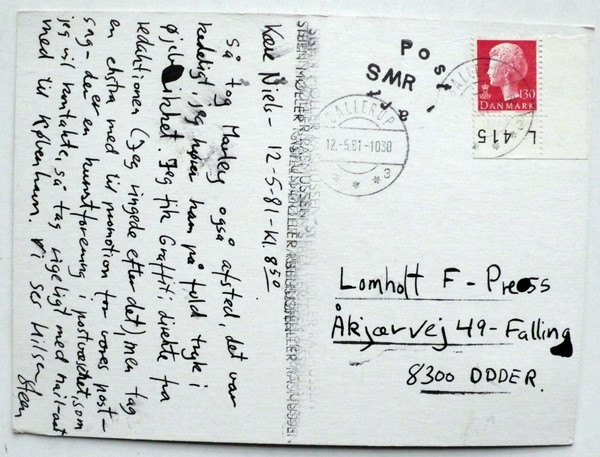 Kære Niels - 12-5-81 - Kl. 8⁵⁰.
Så tog Marley også afsted, det var
kedeligt, jeg hører ham på fuld tryk i
øjeblikket. Jeg fik Graffiti direkte fra
redaktionen (Jeg ringede efter det), men tag
en ekstra med til promotion for vores post-
sag - der er en kunstforening i postvæsenet, som
jeg vil kontakte, så tag rigeligt med mail-art
med til København. Vi ses Hilsen
Steen
STEEN MØLLER RASMUSSEN
Post
SMR
BALLERUP
12.-5.81.-1030
3
130
DANMARK
L 415
Lomholt F - Press
Åkjærvej 49 - Falling
8300 ODDER.